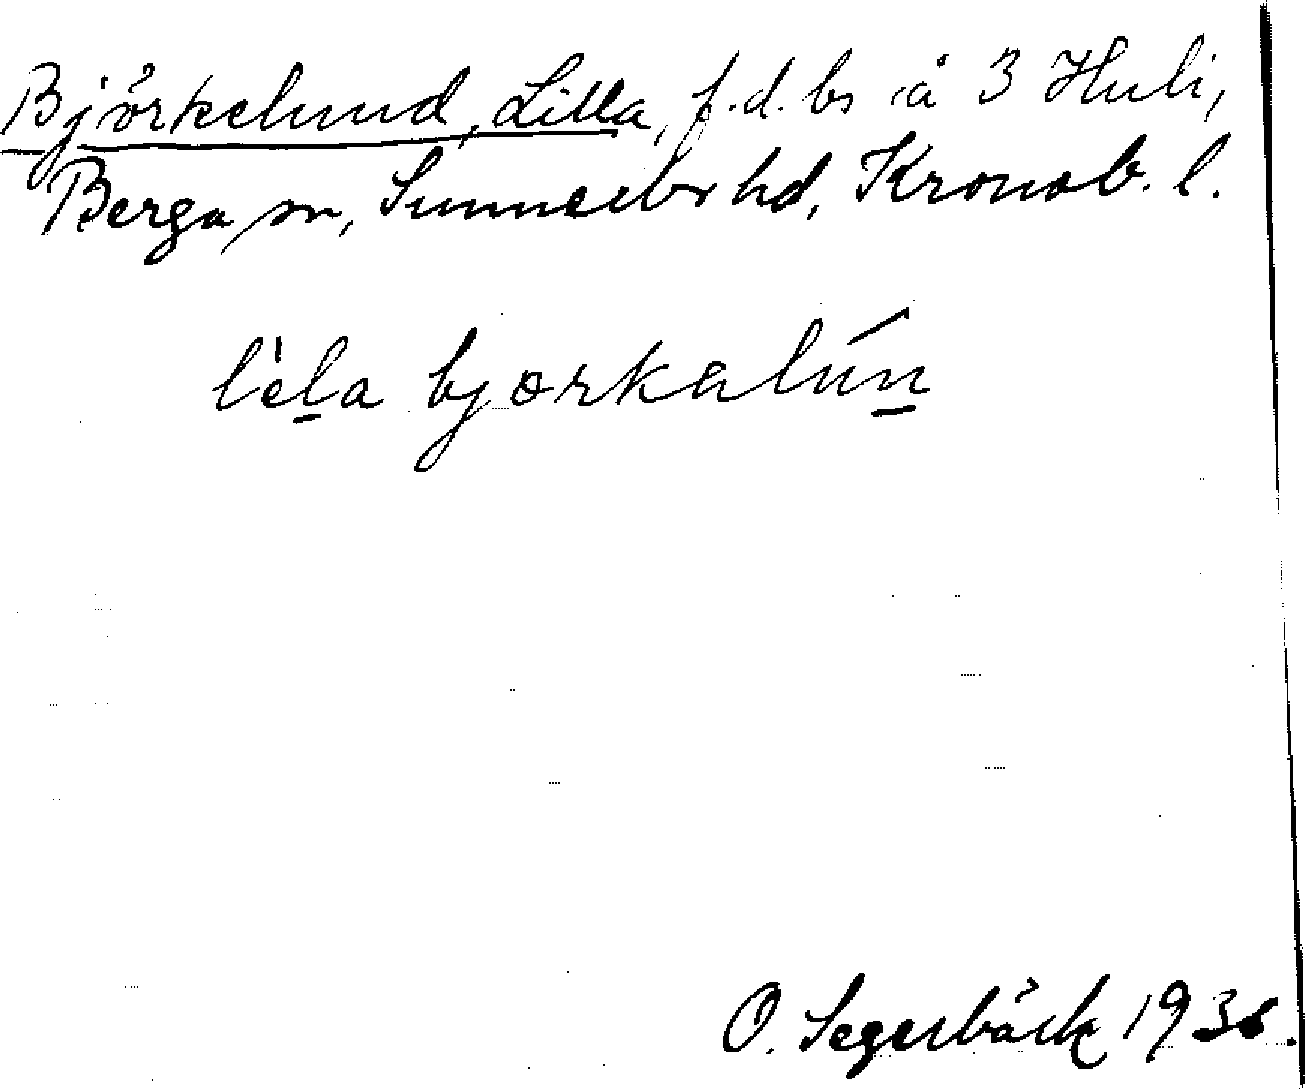 Björkelund, Lilla, f.d. bs å 3 Huli,
Berga sn, Sunnerbo hd, Kronob. l.
lèḻa bjorkalúṉ
O. Segerbäck 1936.